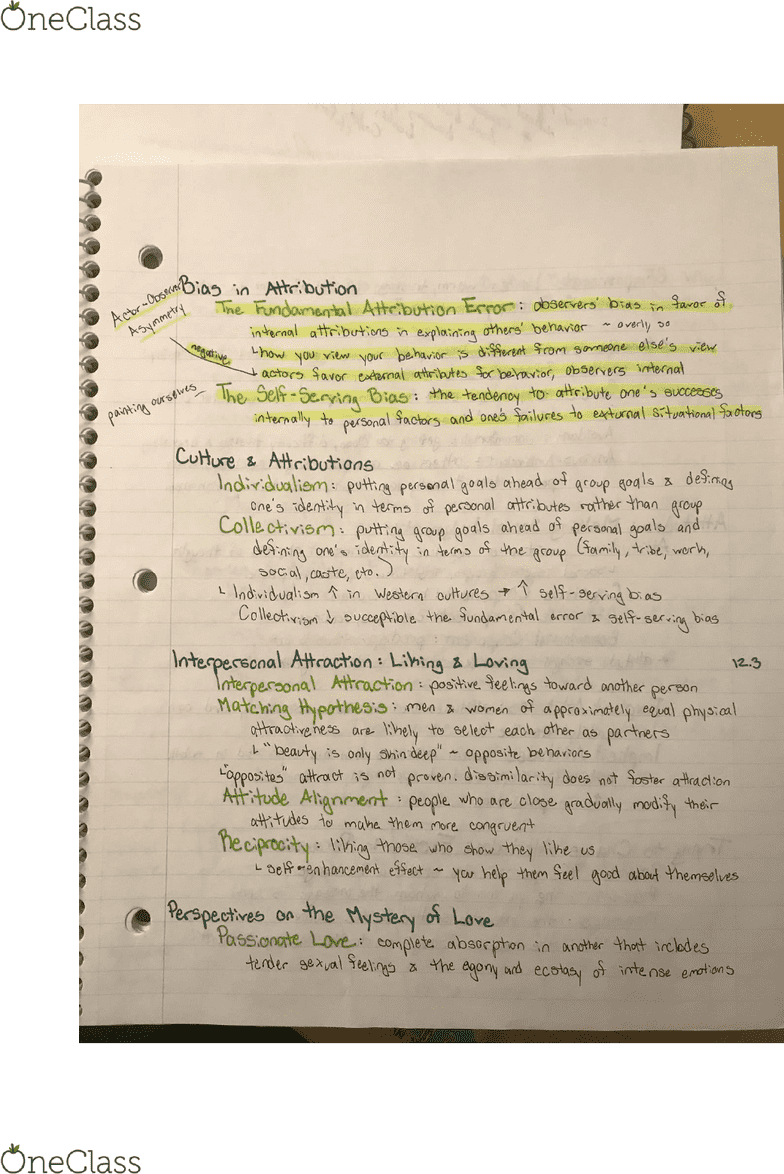 OneClass
Bias in Attribution
Actor-Observer
Asymmetry
The Fundamental Attribution Error: observers' bias in favor of
internal attributions in explaining others' behavior ~ overly so
negative
↳how you view your behavior is different from someone else's view
↳ actors favor external attributes for behavior, observers internal
painting ourselves
The Self-Serving Bias: the tendency to attribute one's successes
internally to personal factors and one's failures to external situational factors
Culture & Attributions
Individualism: putting personal goals ahead of group goals & defining
one's identity in terms of personal attributes rather than group
Collectivism: putting group goals ahead of personal goals and
defining one's identity in terms of the group (family, tribe, work,
social, caste, etc.)
↳ Individualism ↑ in Western cultures → ↑ self-serving bias
Collectivism ↓ succeptible the fundamental error & self-serving bias
Interpersonal Attraction: Liking & Loving 12.3
Interpersonal Attraction: positive feelings toward another person
Matching Hypothesis: men & women of approximately equal physical
attractiveness are likely to select each other as partners
↳ "beauty is only skin deep" ~ opposite behaviors
↳"opposites" attract is not proven. dissimilarity does not foster attraction
Attitude Alignment: people who are close gradually modify their
attitudes to make them more congruent
Reciprocity: liking those who show they like us
↳ self-enhancement effect ~ you help them feel good about themselves
Perspectives on the Mystery of Love
Passionate Love: complete absorption in another that includes
tender sexual feelings & the agony and ecstasy of intense emotions
OneClass